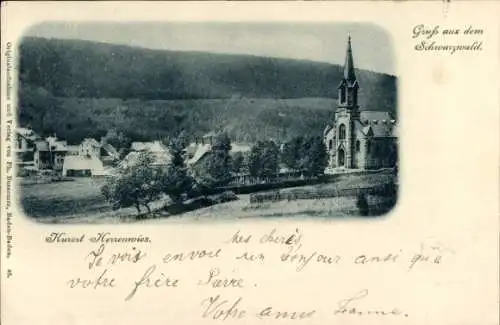 Gruß aus dem
Schwarzwald.
Originalaufnahme und Verlag von Ph. Bussemer, Baden-Baden.
Kurort Herrenwies.
mes chéris,
Je vois envoie un bonjour ainsi qu'a
votre frère Pierre.
Votre amie Jeanne.